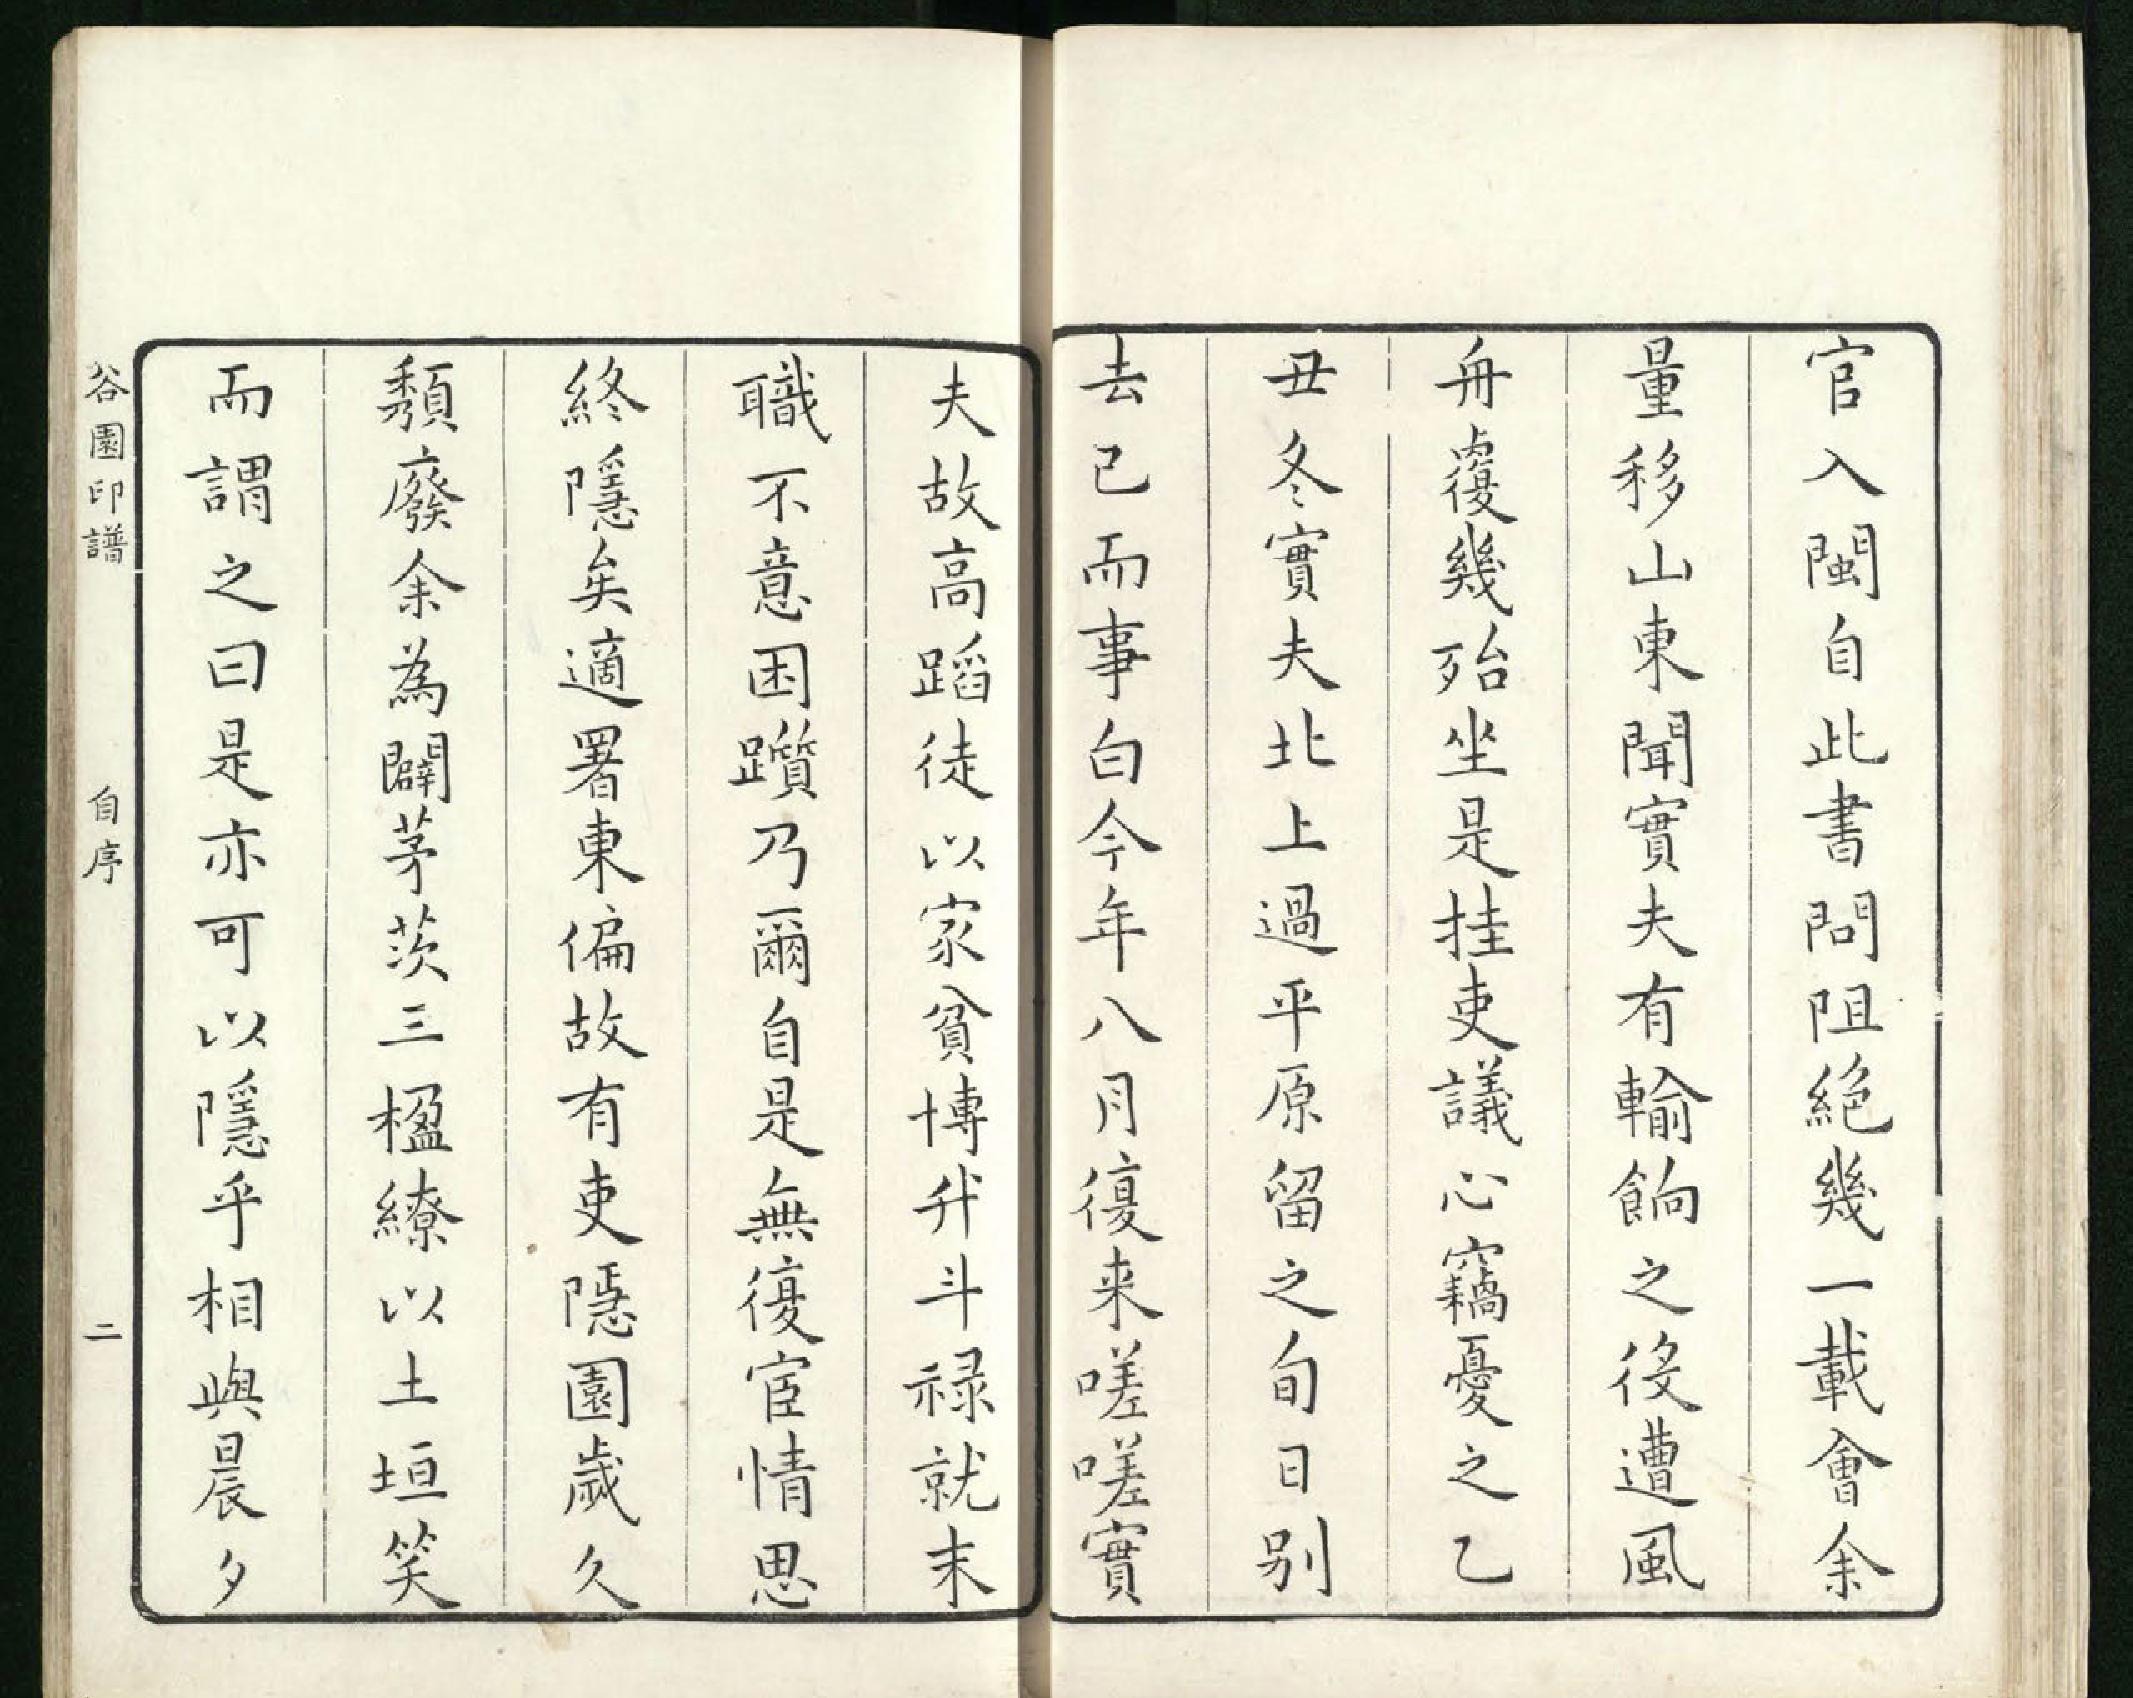 官入閩自此書問阻絕幾一載會余
量移山東聞實夫有輸餉之役遭風
舟覆幾殆坐是挂吏議心竊憂之乙
丑冬實夫北上過平原留之旬日别
去已而事白今年八月復来嗟嗟實
夫故高蹈徒以家貧博升斗禄就末
職不意困躓乃爾自是無復宦情思
終隱矣適署東偏故有吏隱園歲久
頽廢余為闢茅茨三楹繚以土垣笑
而謂之曰是亦可以隱乎相與晨夕
谷園印譜
自序
二